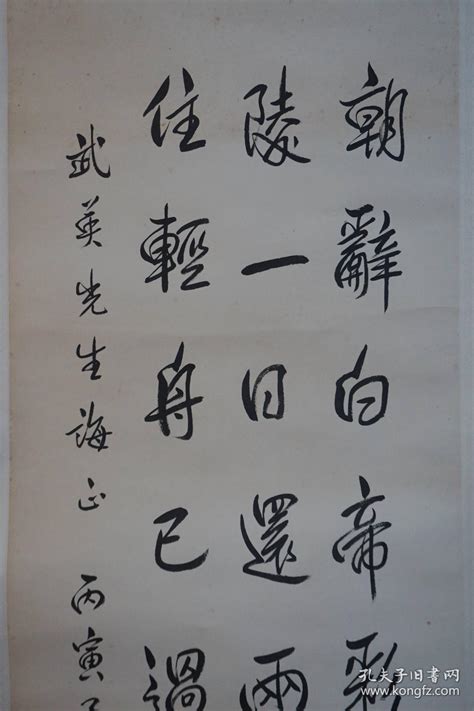 朝辭白帝彩
陵一日還兩
住輕舟已過
武英先生誨正 丙寅
孔夫子旧书网
www.kongfz.com